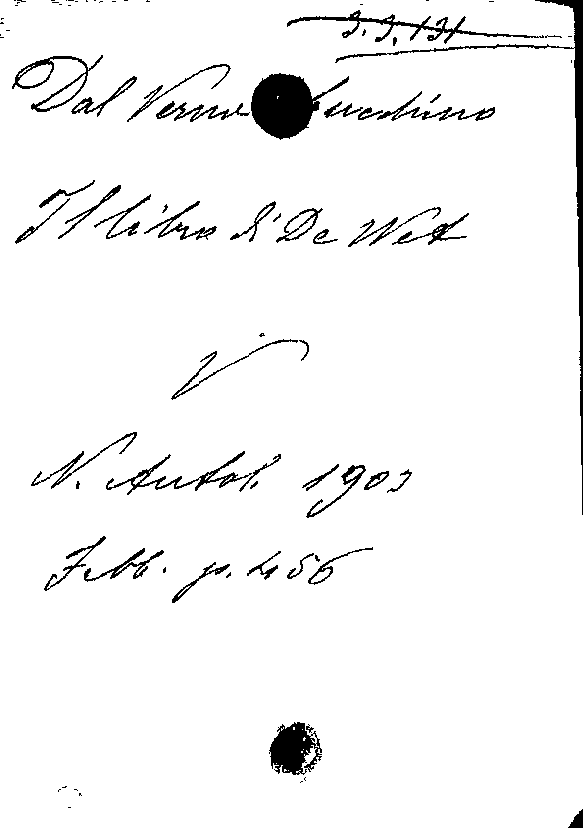 3.3./31
Dal Verme Luchino
Il libro di De Wet
V
N. Antol. 1903
Febb. p. 456